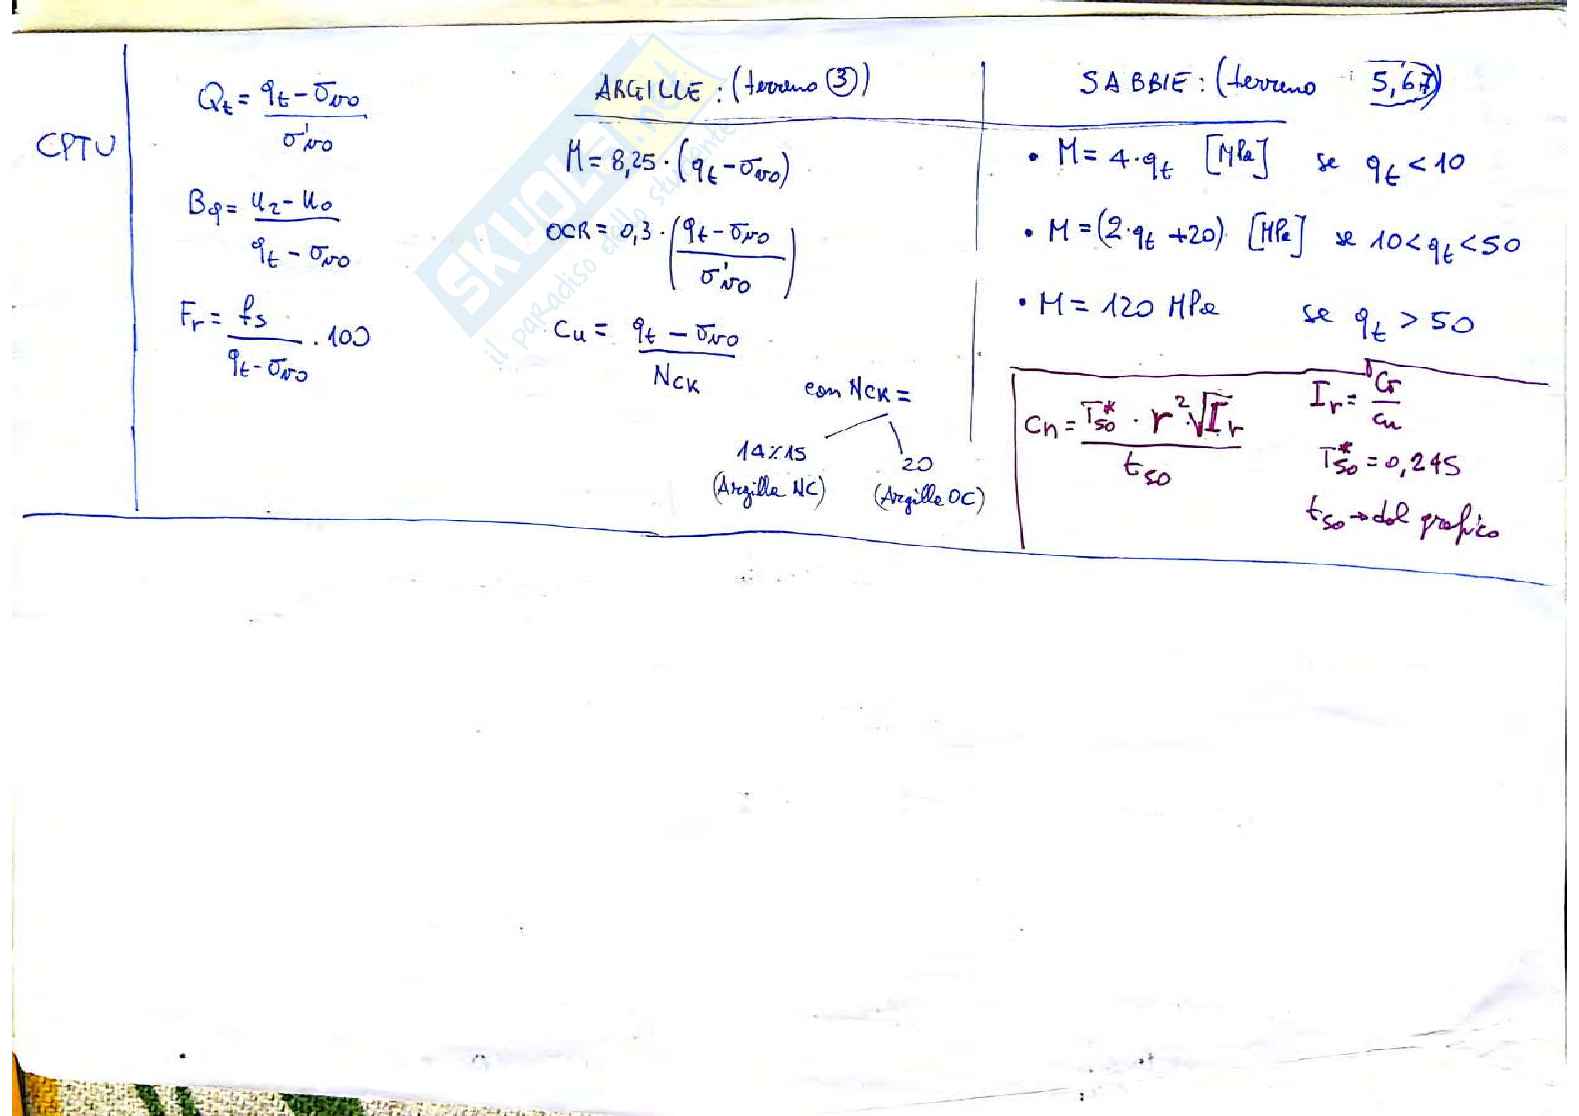 CPTU
Qt = qt - σv0 / σ'v0
Bq = u2 - u0 / qt - σv0
Fr = fs / qt - σv0 · 100
ARGILLE : (terreno 3)
M = 8,25 · (qt - σv0)
OCR = 0,3 · (qt - σv0 / σ'v0)
Cu = qt - σv0 / NCK
con NCK =
14%15
(Argilla NC)
20
(Argille OC)
SABBIE : (terreno 5,6,7)
• M = 4·qt [MPa] se qt < 10
• M = (2·qt +20) [MPa] se 10 < qt < 50
• M = 120 MPa se qt > 50
Cn = T50* · r² √Ir / t50
Ir = G / cu
T50* = 0,245
t50 → dal grafico
SKUOLA.net
il paradiso dello studente